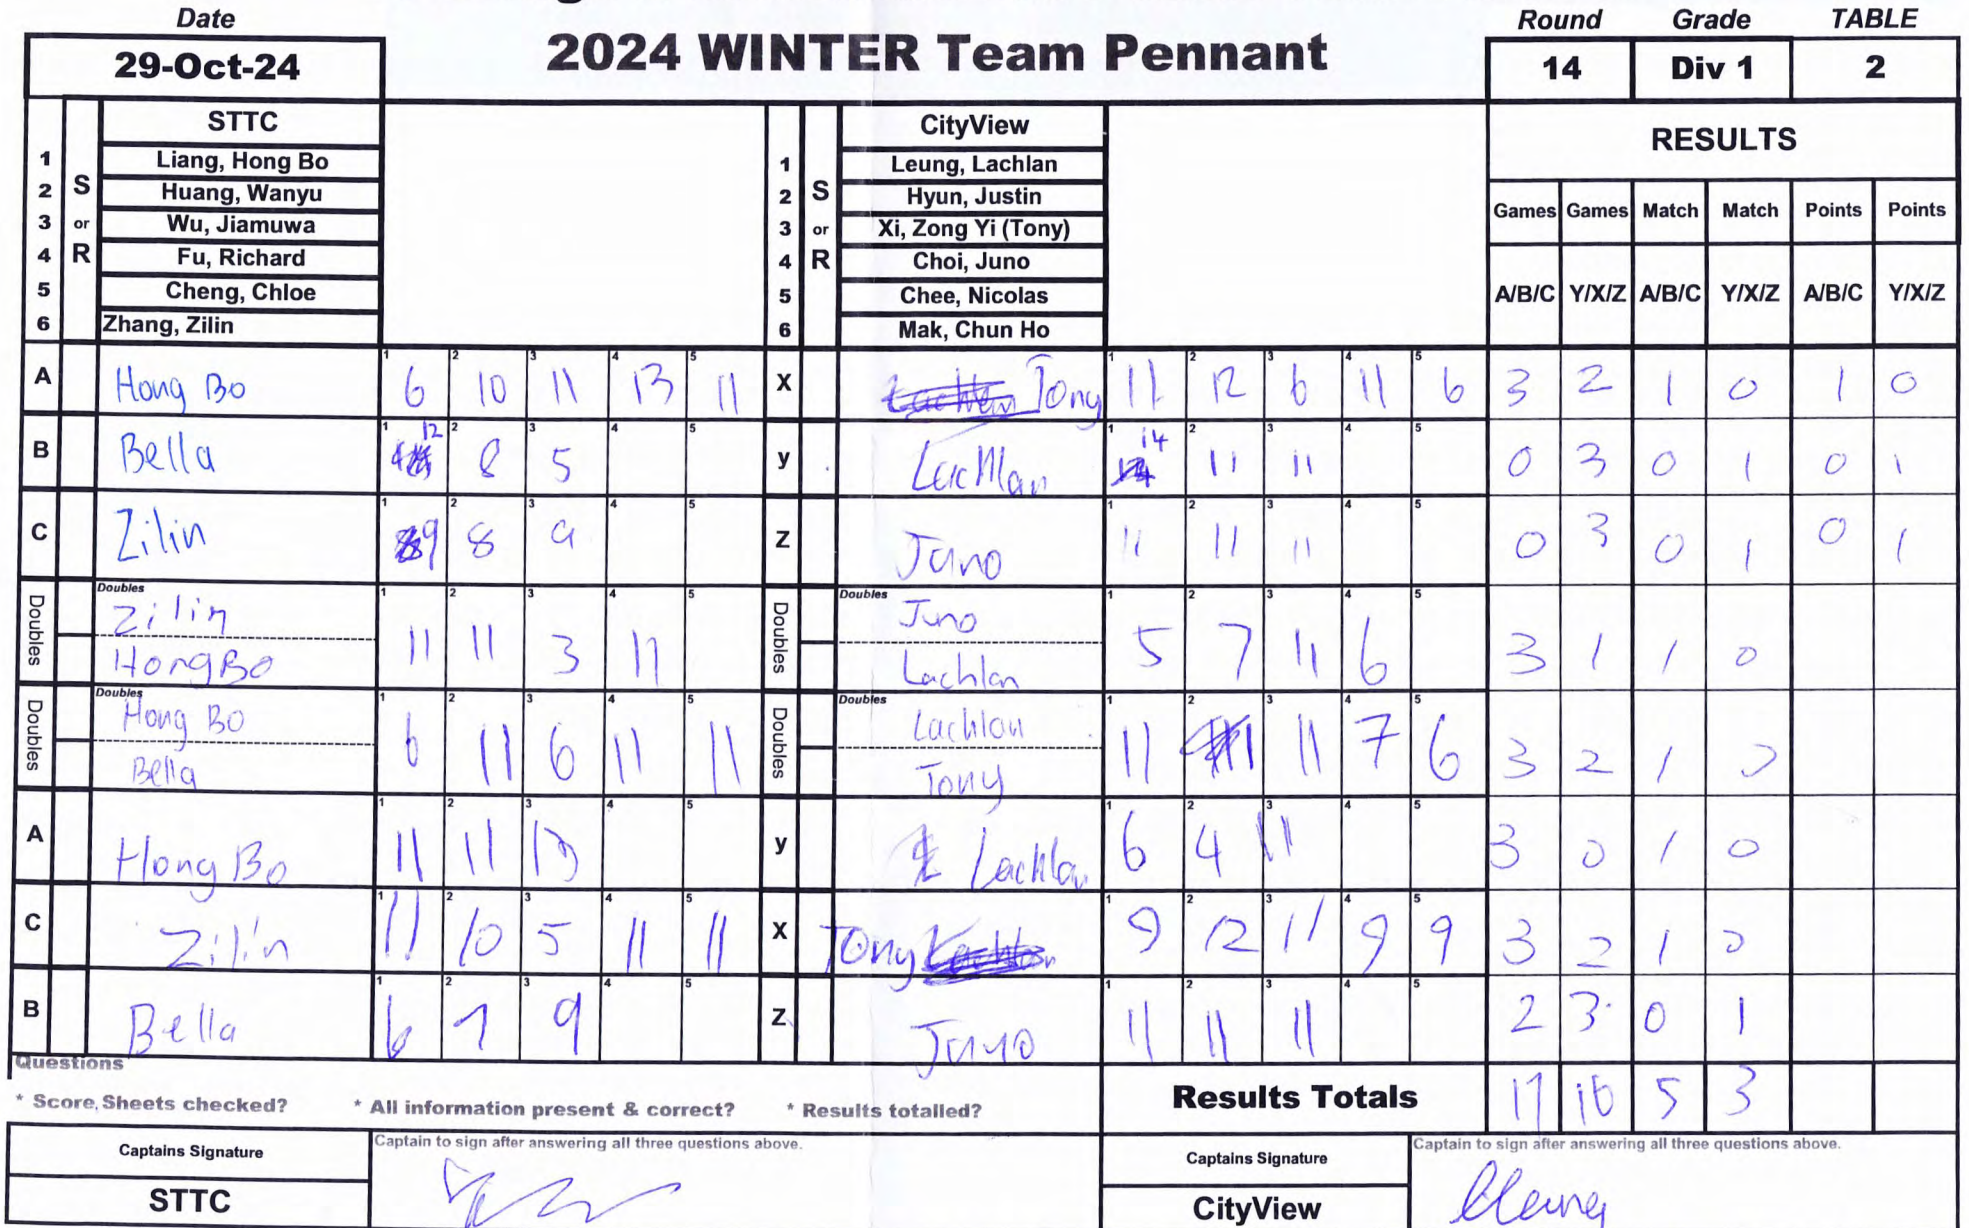 Date
29-Oct-24
2024 WINTER Team Pennant
Round Grade TABLE
14 Div 1 2
STTC
1 Liang, Hong Bo
2 Huang, Wanyu
3 Wu, Jiamuwa
4 Fu, Richard
5 Cheng, Chloe
6 Zhang, Zilin
S or R
CityView
1 Leung, Lachlan
2 Hyun, Justin
3 Xi, Zong Yi (Tony)
4 Choi, Juno
5 Chee, Nicolas
6 Mak, Chun Ho
S or R
RESULTS
Games Games Match Match Points Points
A/B/C Y/X/Z A/B/C Y/X/Z A/B/C Y/X/Z
A Hong Bo 6 10 11 13 11 X Tony 11 12 6 11 6 3 2 1 0 1 0
B Bella 12 8 5 y Lachlan 14 11 11 0 3 0 1 0 1
C Zilin 9 8 9 Z Juno 11 11 11 0 3 0 1 0 1
Doubles Doubles Zilin 11 11 3 11 Doubles Doubles Juno 5 7 11 6 3 1 1 0
HongBo Lachlan
Doubles Doubles Hong Bo 6 11 6 11 11 Doubles Doubles Lachlan 11 11 7 6 3 2 1 0
Bella Tony
A Hong Bo 11 11 13 y Lachlan 6 4 11 3 0 1 0
C Zilin 11 10 5 11 11 X Tony 9 12 11 9 9 3 2 1 0
B Bella 6 7 9 Z Juno 11 11 11 2 3 0 1
Questions
* Score Sheets checked? * All information present & correct? * Results totalled?
Results Totals 17 16 5 3
Captains Signature Captain to sign after answering all three questions above.
STTC
Captains Signature Captain to sign after answering all three questions above.
CityView